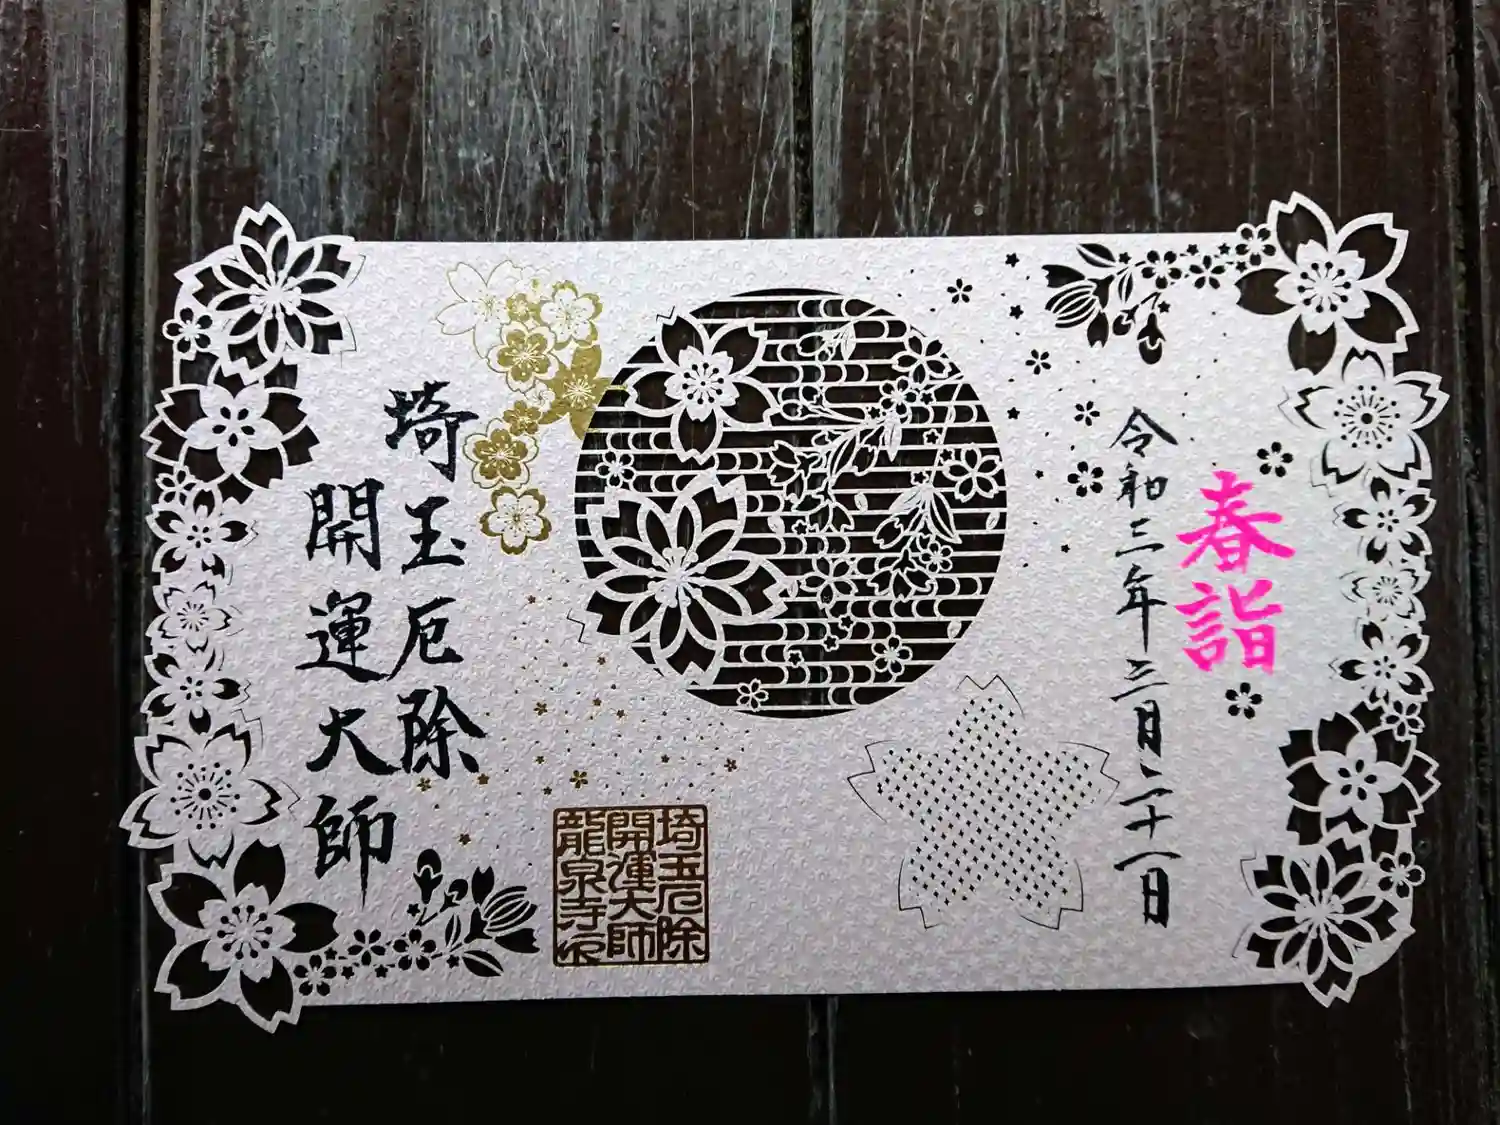 春詣
令和三年三月二十一日
埼玉厄除
開運大師
埼玉厄除
開運大師
龍泉寺印